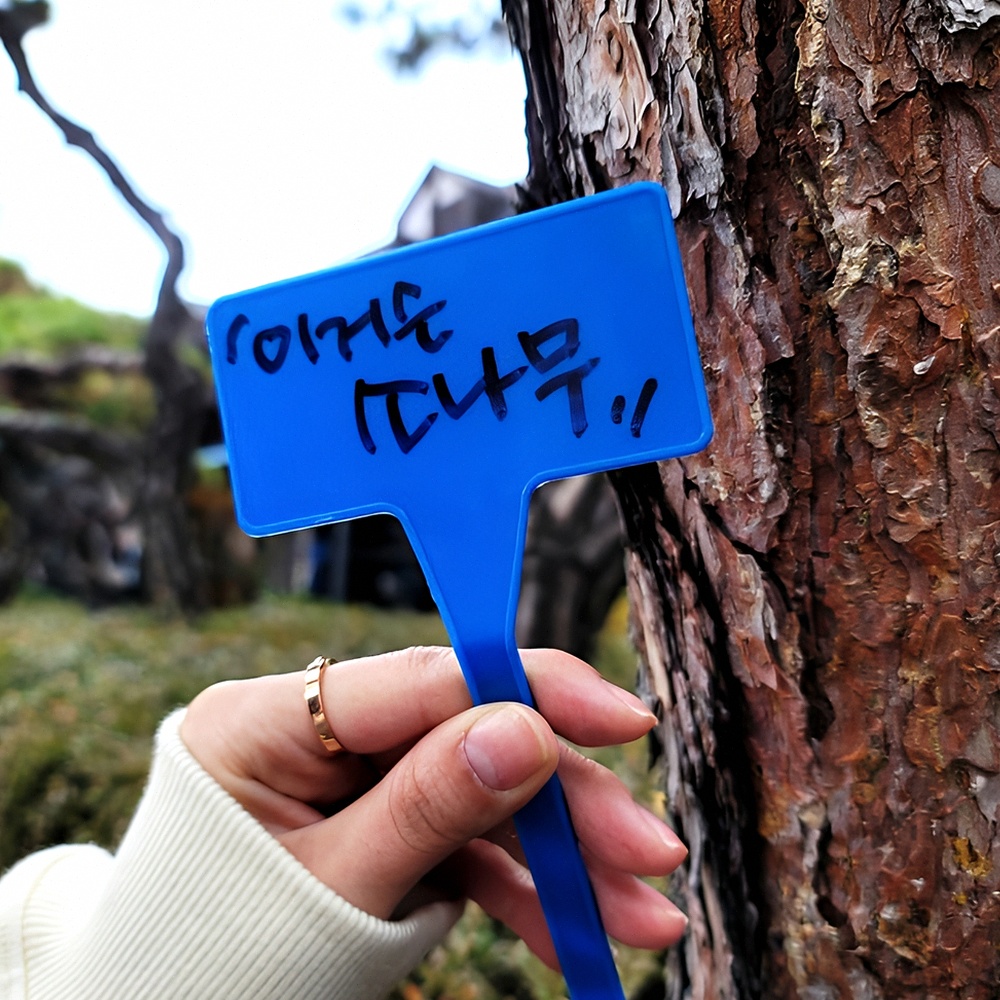 "이거슨
소나무"